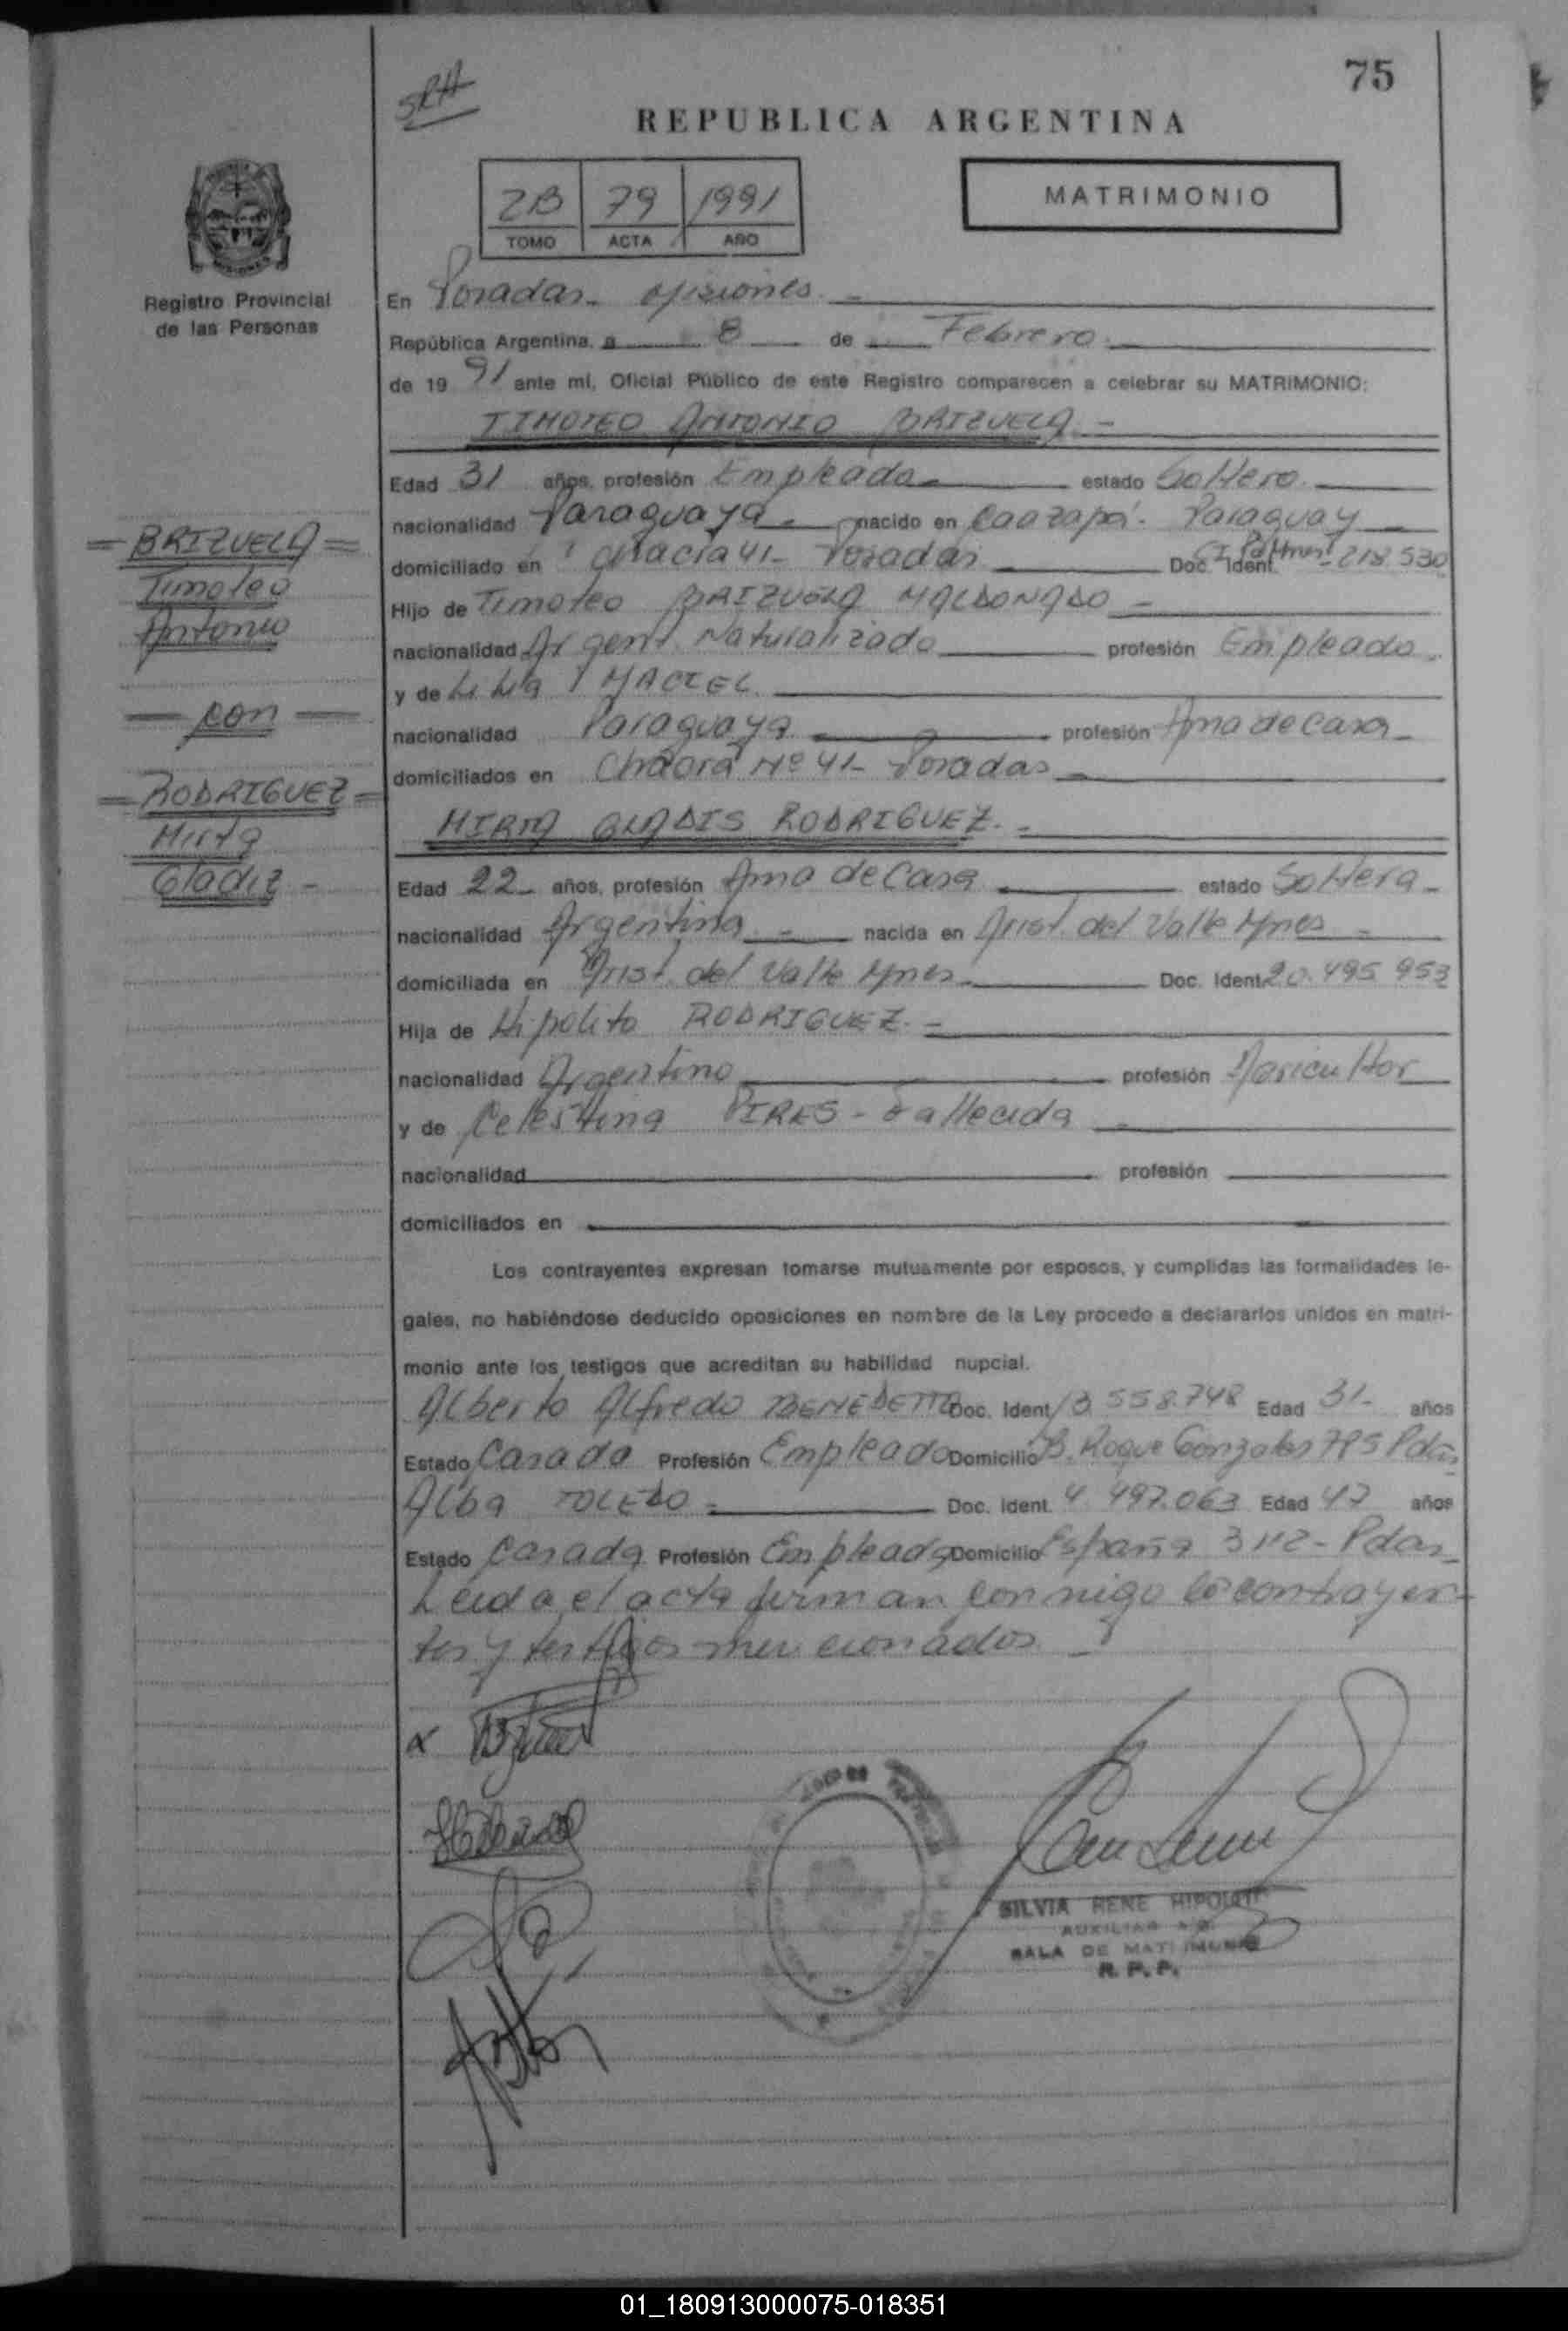 75
SRH
REPUBLICA ARGENTINA
2B 79 1991
TOMO ACTA AÑO
MATRIMONIO
Registro Provincial
de las Personas
En Posadas - Misiones. -
República Argentina, a 8 de Febrero.
de 19 91 ante mí, Oficial Público de este Registro comparecen a celebrar su MATRIMONIO:
TIMOTEO ANTONIO BRIZUELA. -
Edad 31 años, profesión Empleado estado Soltero.
nacionalidad Paraguaya. nacido en Caazapá. Paraguay
domiciliado en Chacra 41- Posadas Doc. Ident. CI Pol Mnes - 218.530
Hijo de Timoteo BRIZUELA MALDONADO -
nacionalidad Argent. Naturalizado profesión Empleado.
y de Lidia MACIEL.
nacionalidad Paraguaya. profesión Ama de Casa
domiciliados en Chacra Nº 41- Posadas
MIRTA GLADIS RODRIGUEZ. -
Edad 22 años, profesión Ama de Casa estado Soltera
nacionalidad Argentina nacida en Arist. del Valle Mnes
domiciliada en Arist. del Valle Mnes. Doc. Ident 20.495.953
Hija de Hipolito RODRIGUEZ. -
nacionalidad Argentino profesión Agricultor
y de Celestina PIRES - Fallecida
nacionalidad profesión
domiciliados en
Los contrayentes expresan tomarse mutuamente por esposos, y cumplidas las formalidades le-
gales, no habiéndose deducido oposiciones en nombre de la Ley procedo a declararlos unidos en matri-
monio ante los testigos que acreditan su habilidad nupcial.
Alberto Alfredo BENEDETTO Doc. Ident 13.558.748 Edad 31- años
Estado Casado Profesión Empleado Domicilio B. Roque Gonzales 795 Pdas
Alba TOLEDO Doc. Ident. 4.497.063 Edad 47 años
Estado Casada Profesión Empleada Domicilio España 3112 - Pdas
Leida el acta firman conmigo lo contrayen-
tes y testigos mencionados
= BRIZUELA =
Timoteo
Antonio
con
= RODRIGUEZ =
Mirta
Gladiz -
SILVIA RENE HIPOLITO
AUXILIAR
SALA DE MATRIMONIO
R. P. P.
01_180913000075-018351